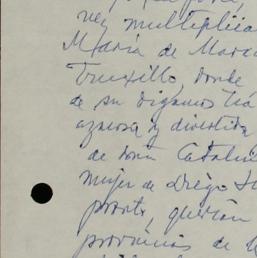 vez multiplica
María de Mara
Truxillo, donde
de su digamos tía
azarosa y divertida
de doña Catalin
mujer de Diego
pronto, querían
provincias de